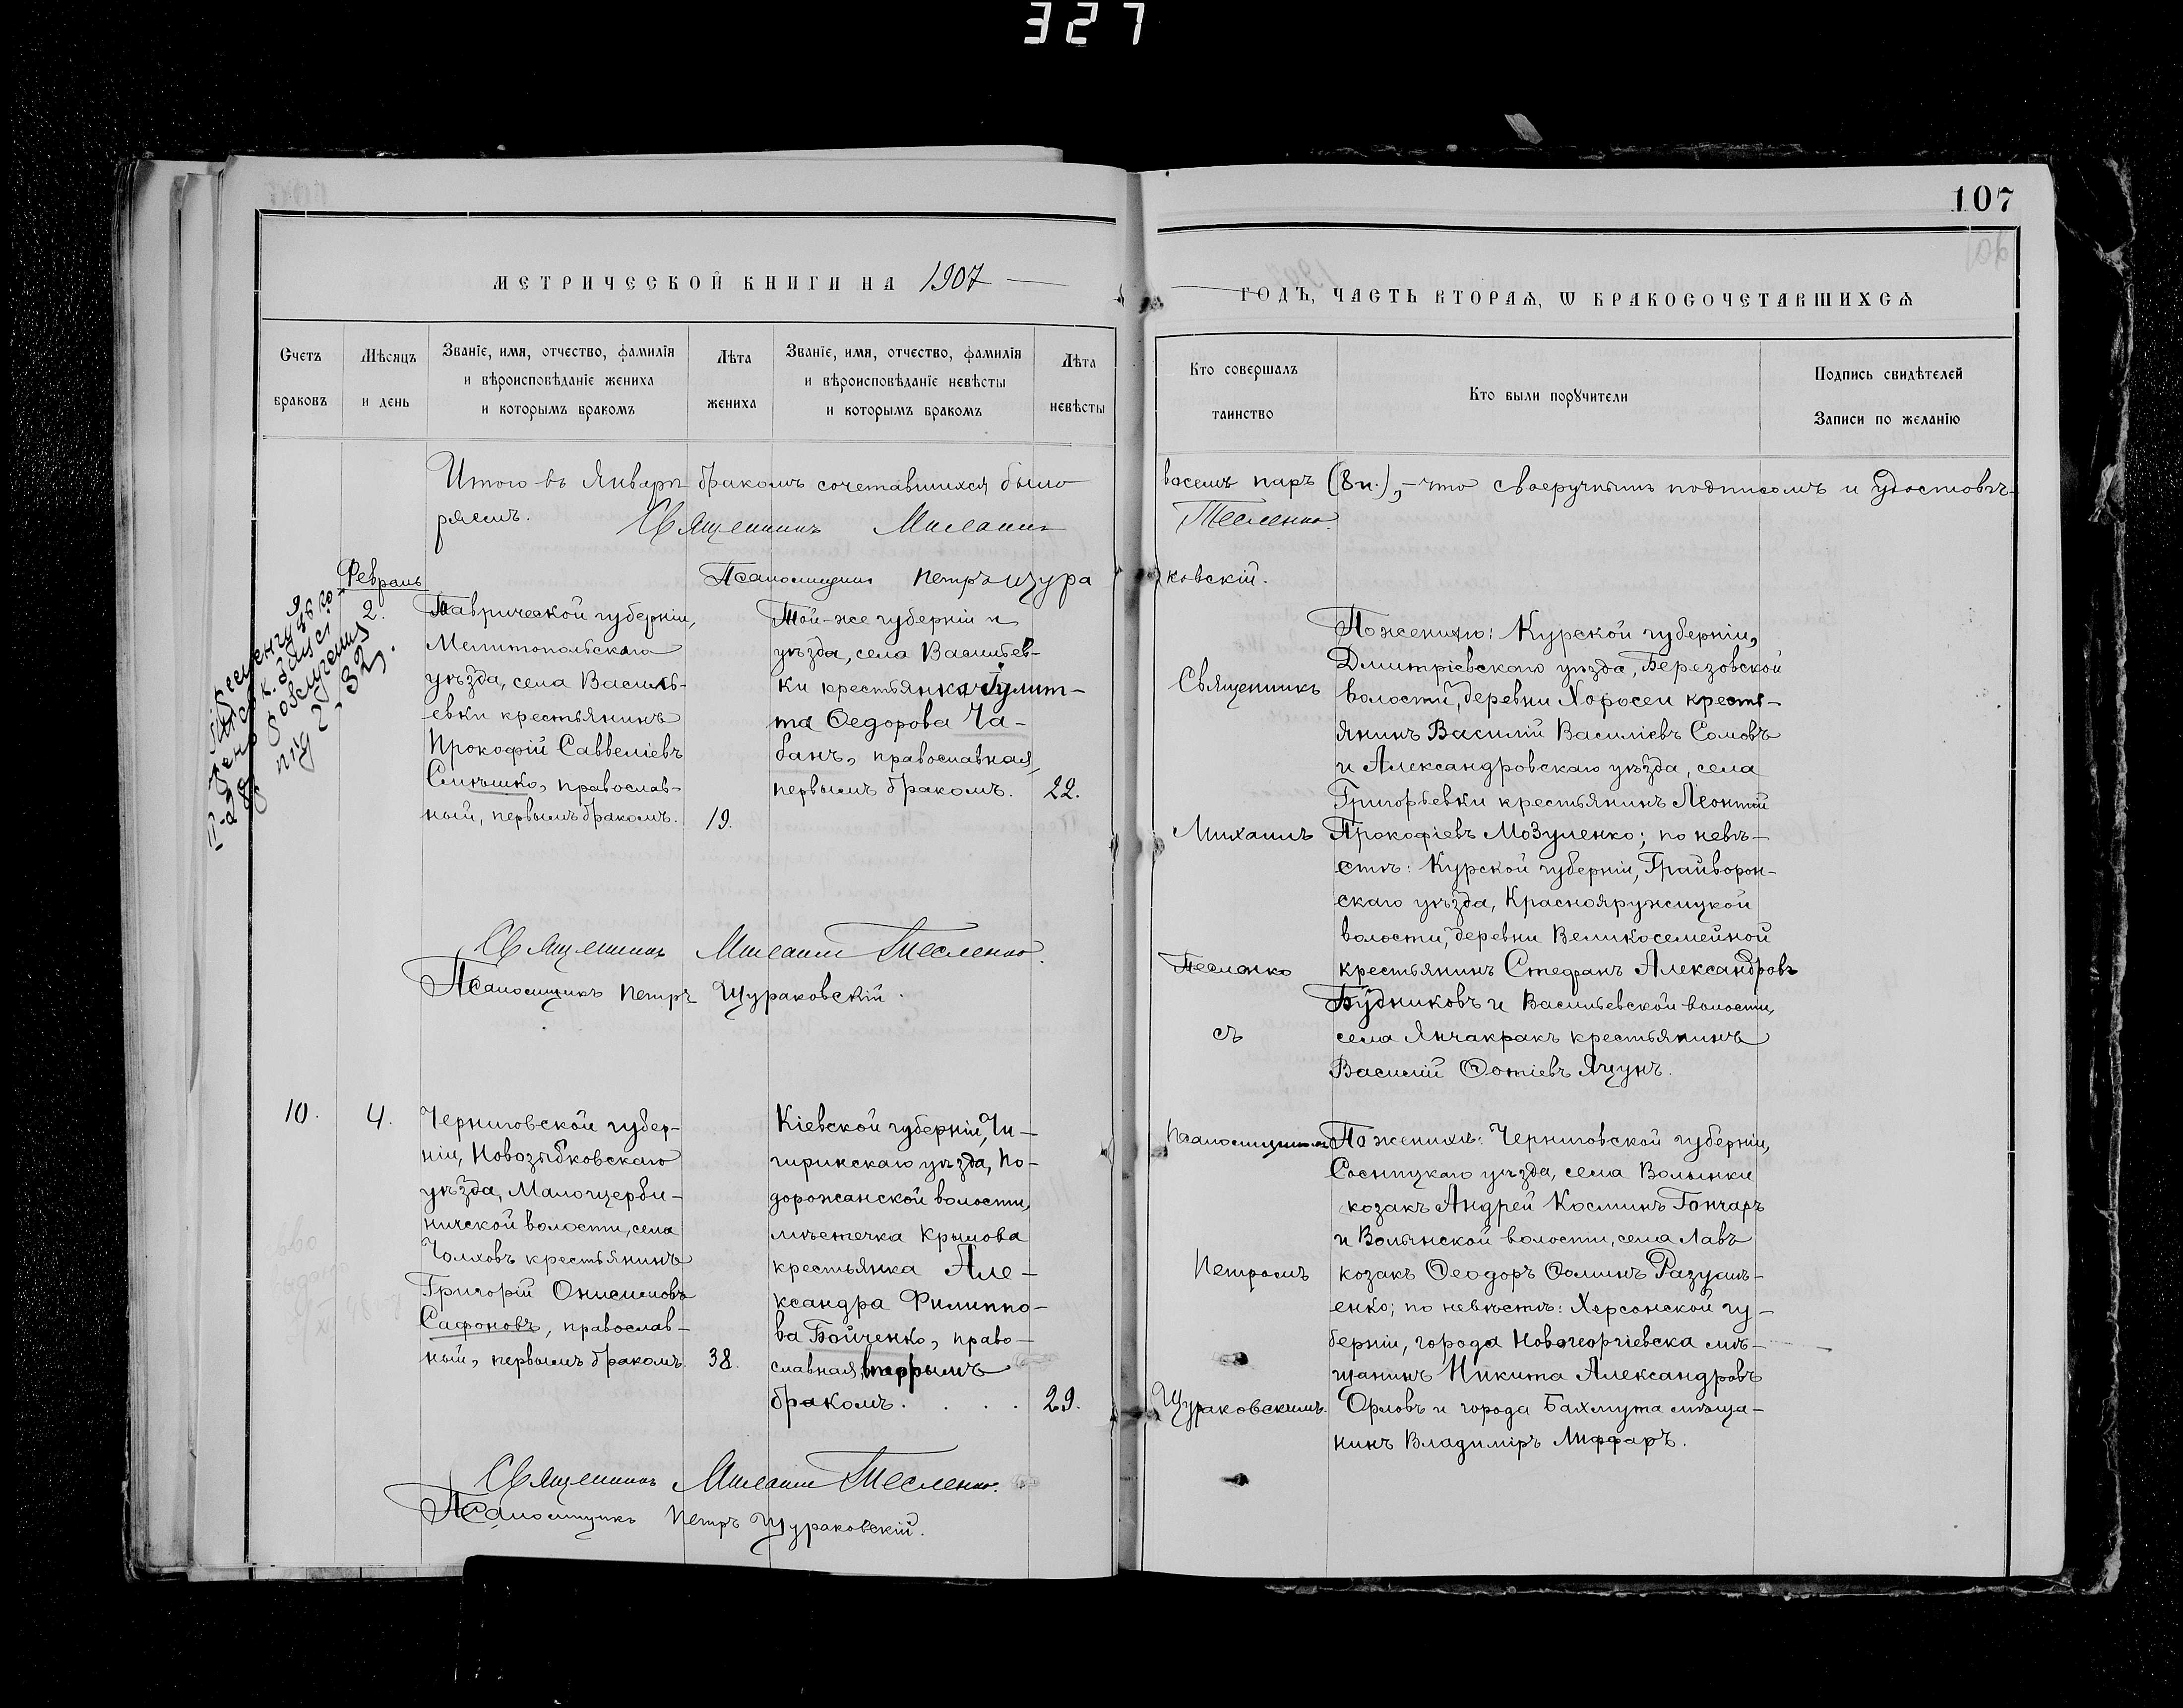 327
107
МЕТРИЧЕСКОЙ КНИГИ НА 1907
ГОДЪ, ЧАСТЬ ВТОРАЯ, Ѡ БРАКОСОЧЕТАВШИХСЯ
Счетъ браковъ
Мѣсяцъ и день
Званіе, имя, отчество, фамилія
и вѣроисповѣданіе жениха
и которымъ бракомъ
Лѣта жениха
Званіе, имя, отчество, фамилія
и вѣроисповѣданіе невѣсты
и которымъ бракомъ
Лѣта невѣсты
Кто совершалъ таинство
Кто были поручители
Подпись свидѣтелей
Записи по желанію
Итого въ Январѣ бракомъ сочетавшихся было восемь паръ (8 п.), – что своеручнымъ подписомъ и удостовѣ-
ряемъ. Священникъ Михаилъ Тесленко.
Псаломщикъ Петръ Щураковскій.
Февраль
9.
2.
Таврической губерніи,
Мелитопольскаго
уѣзда, села Василь-
евки крестьянинъ
Прокофій Саввеліевъ
православ-
ный, первымъ бракомъ.
19.
Той-же губерніи и
уѣзда, села Васильев-
ки крестьянка Іулит-
та Ѳедорова Ча-
банъ, православная,
первымъ бракомъ.
22.
Священникъ Михаилъ Тесленко.
Псаломщикъ Петръ Щураковскій.
Священникъ
Михаилъ
Тесленко
съ
Псаломщикомъ
Петромъ
Щураковскимъ.
По женихю: Курской губерніи,
Дмитріевскаго уѣзда, Березовской
волости, деревни Хоросеи кресть-
янинъ Василій Василіевъ Сомовъ
и Александровскаго уѣзда, села
Григорьевки крестьянинъ Леонтій
Прокофіевъ Мозуленко; по невѣ-
стѣ: Курской губерніи, Грайворон-
скаго уѣзда, Краснояружицкой
волости, деревни Великосемейной
крестьянинъ Стефанъ Александровъ
Будниковъ и Васильевской волости,
села Янчакракъ крестьянинъ
Василій Ѳотіевъ Ящунъ.
10.
4.
Черниговской губер-
ніи, Новозыбковскаго
уѣзда, Малощерби-
ничской волости, села
Чолховъ крестьянинъ
Григорій Онисимовъ
Сафоновъ, православ-
ный, первымъ бракомъ.
38.
Кіевской губерніи, Чи-
гиринскаго уѣзда, По-
дорожанской волости,
мѣстечка Крылова
крестьянка Але-
ксандра Филиппо-
ва Бойченко, право-
славная, вторымъ
бракомъ. . . . .
29.
По женихѣ: Черниговской губерніи,
Сосницкаго уѣзда, села Волынки
козакъ Андрей Косминъ Гончаръ
и Волынской волости, села Лавъ
козакъ Ѳеодоръ Ѳоминъ Разумѣ-
енко; по невѣстѣ: Херсонской гу-
берніи, города Новогеоргіевска мѣ-
щанинъ Никита Александровъ
Орловъ и города Бахмута мѣща-
нинъ Владиміръ Лиффаръ.
Священникъ Михаилъ Тесленко.
Псаломщикъ Петръ Щураковскій.